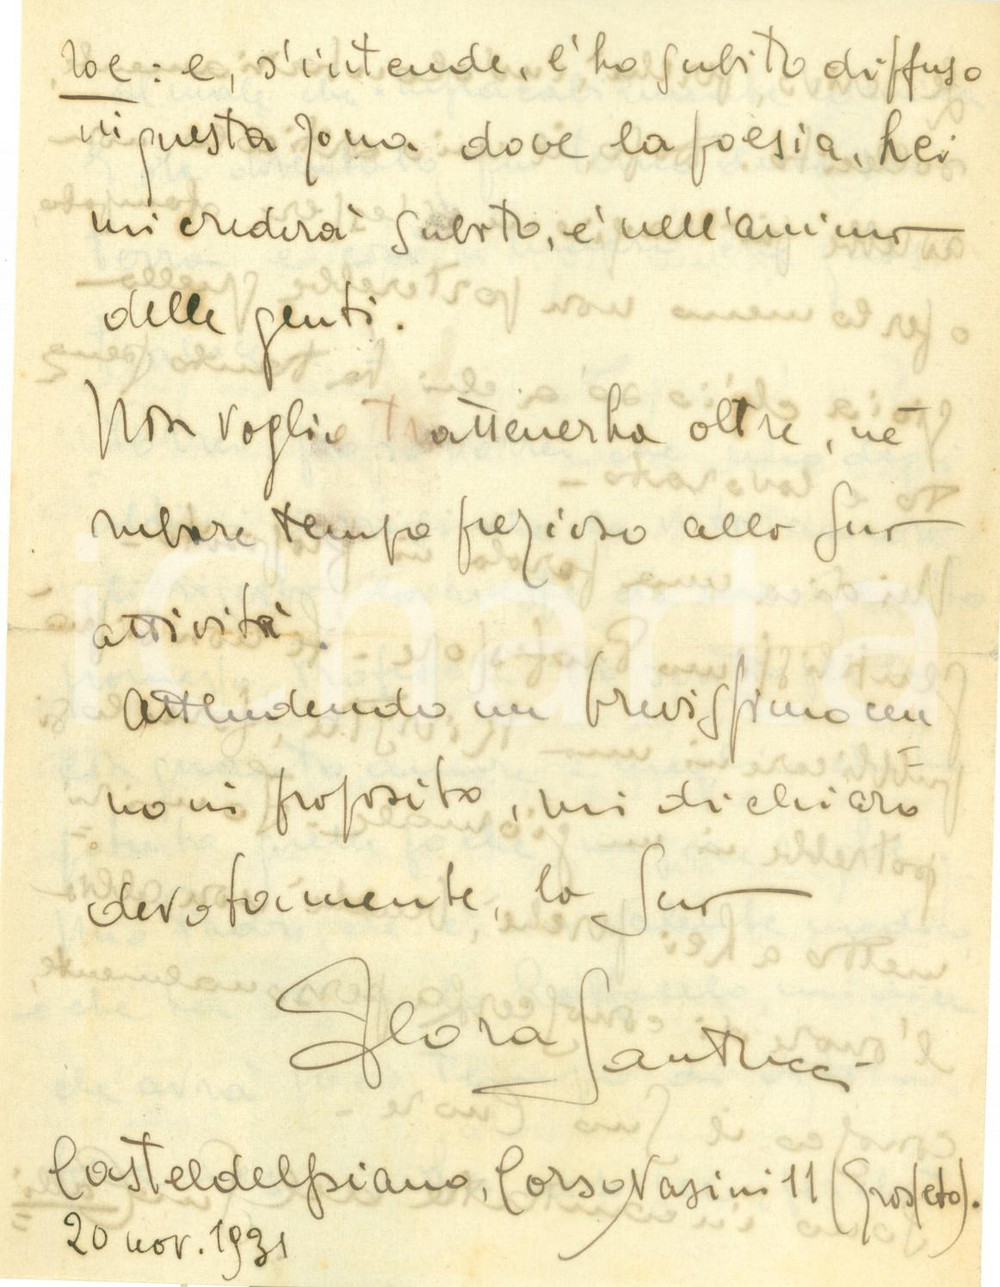 roe: e, s'intende, l'ho subito diffuso
in questa zona dove la poesia, Lei
mi crederà subito, è nell'animo
delle genti.
Non voglio trattenerLa oltre, né
rubare tempo prezioso alla Sua
attività.
Attendendo un brevissimo cen
no in proposito, mi dichiaro
devotamente, la Sua
Flora Santucci
Casteldelpiano, Corso Nasini 11 (Grosseto).
20 nov. 1931
icharta